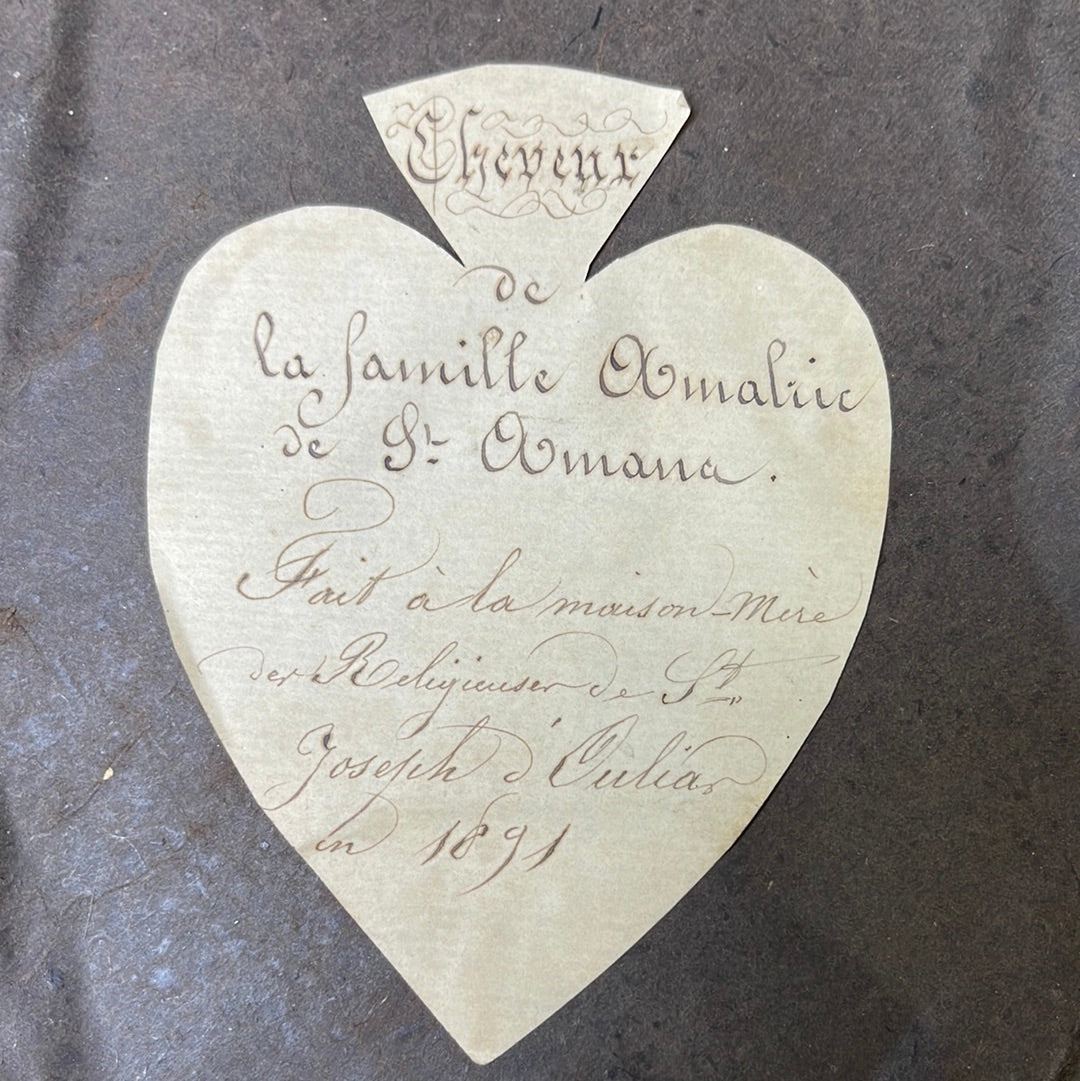 Cheveux
de
la famille Amalric
de St Amans.
Fait à la maison-Mère
des Religieuses de St
Joseph d'Oulias
en 1891